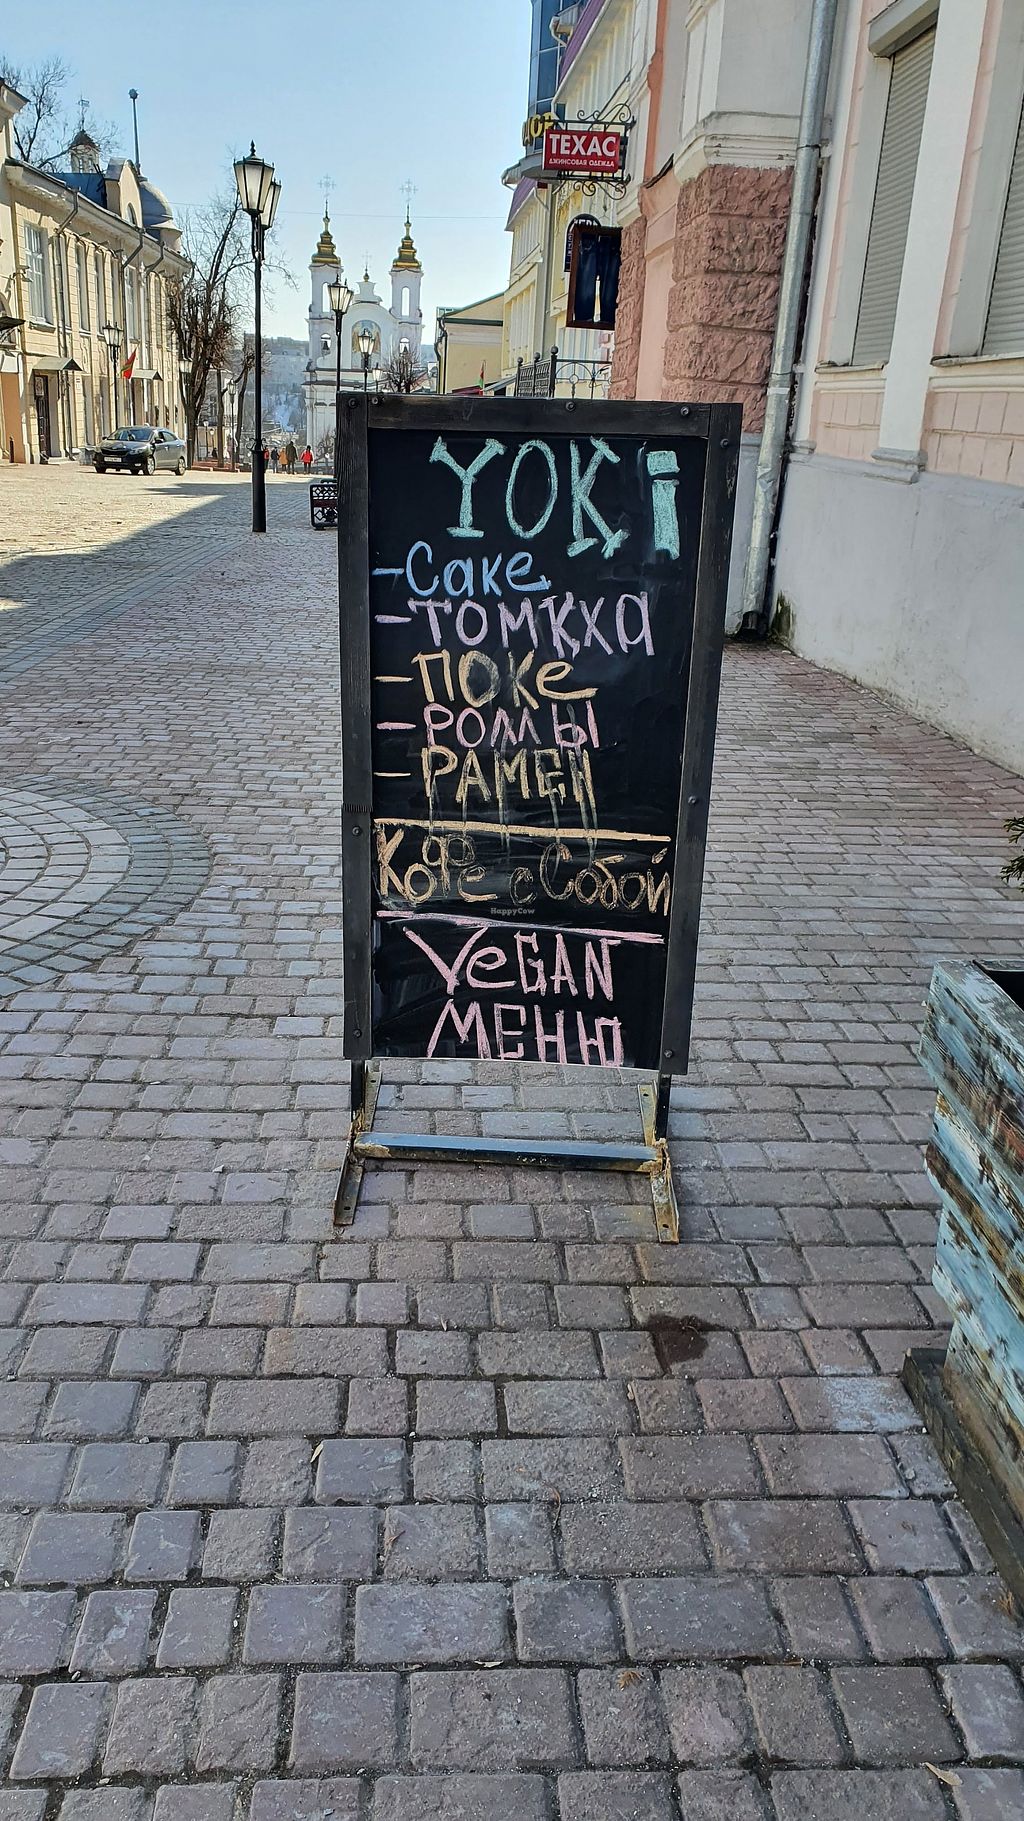 ТЕХАС
ДЖИНСОВАЯ ОДЕЖДА
YOKi
-Саке
-ТОМКХА
-ПОКе
-РОЛЛЫ
-РАМЕН
Кофе с Собой
HappyCow
VeGAN
МЕНЮ